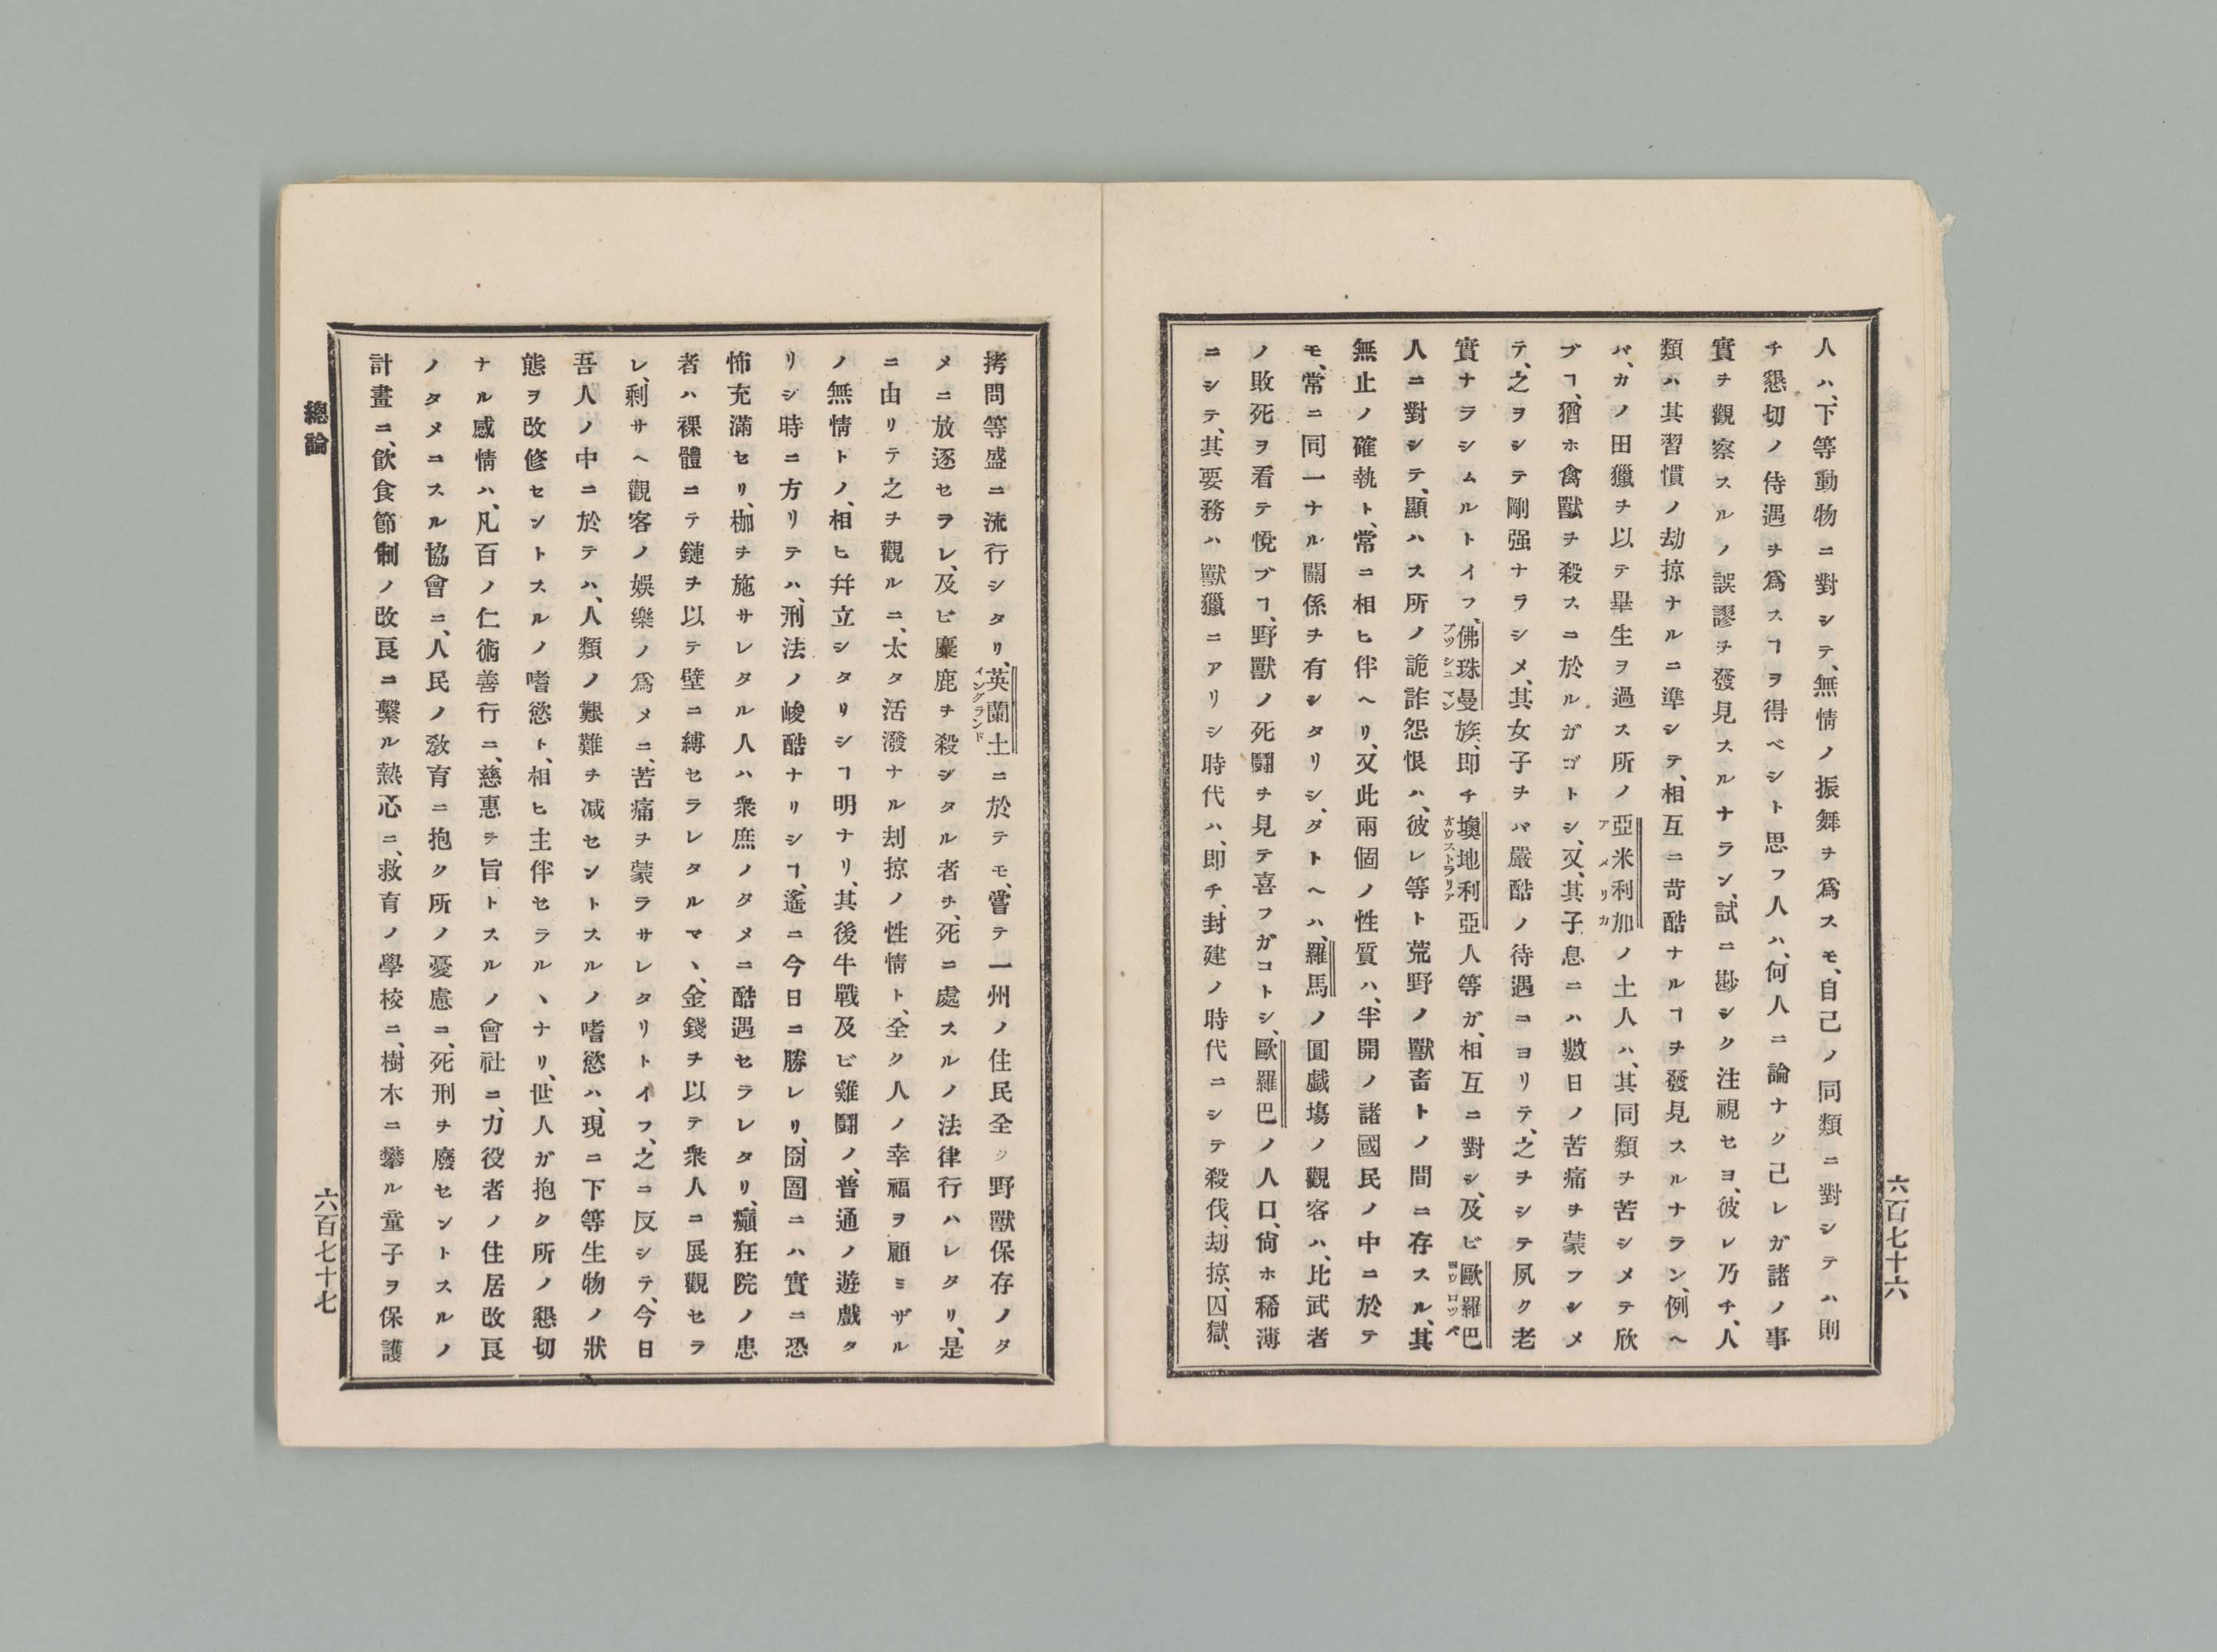 人ハ、下等動物ニ對シテ、無情ノ振舞ヲ爲スモ、自己ノ同類ニ對シテハ則
チ懇切ノ待遇ヲ爲スヿヲ得ベシト思フ人ハ、何人ニ論ナク己レガ諸ノ事
實ヲ觀察スルノ誤謬ヲ發見スルナラン、試ニ尠シク注視セヨ、彼レ乃チ、人
類ハ其習慣ノ劫掠ナルニ準シテ、相互ニ苛酷ナルヿヲ發見スルナラン、例ヘ
バ、カノ田獵ヲ以テ畢生ヲ過ス所ノ亞米利加ノ土人ハ、其同類ヲ苦シメテ欣
アメリカ
ブヿ、猶ホ禽獸ヲ殺スニ於ルガゴトシ、又其子息ニハ數日ノ苦痛ヲ蒙フシメ
テ、之ヲシテ剛强ナラシメ、其女子ヲバ嚴酷ノ待遇ニヨリテ、之ヲシテ夙ク老
實ナラシムルトイフ、佛珠曼族、即チ墺地利亞人等ガ、相互ニ對シ、及ビ歐羅巴
ブッシュマン
オウストラリア
ヨウロッペ
人ニ對シテ、顯ハス所ノ詭詐怨恨ハ、彼レ等ト荒野ノ獸畜トノ間ニ存スル、其
無止ノ確執ト、常ニ相ヒ伴ヘリ、又此兩個ノ性質ハ、半開ノ諸國民ノ中ニ於テ
モ、常ニ同一ナル關係ヲ有シタリシ、タトヘハ、羅馬ノ圓戲塲ノ觀客ハ、比武者
ノ敗死ヲ看テ悅ブヿ、野獸ノ死鬪ヲ見テ喜フガコトシ、歐羅巴ノ人口、尙ホ稀薄
ニシテ、其要務ハ獸獵ニアリシ時代ハ、即チ、封建ノ時代ニシテ殺伐、劫掠、囚獄、
六百七十六
拷問等盛ニ流行シタリ、英蘭土ニ於テモ、嘗テ一州ノ住民全ク野獸保存ノタ
イングランド
メニ放逐セラレ、及ビ麋鹿ヲ殺シタル者ヲ、死ニ處スルノ法律行ハレタリ、是
ニ由リテ之ヲ觀ルニ、太タ活潑ナル刧掠ノ性情ト、全ク人ノ幸福ヲ顧ミザル
ノ無情トノ、相ヒ幷立シタリシヿ明ナリ、其後牛戰及ビ雞鬪ノ、普通ノ遊戲タ
リシ時ニ方リテハ、刑法ノ峻酷ナリシヿ、遙ニ今日ニ勝レリ、囹圄ニハ實ニ恐
怖充滿セリ、枷ヲ施サレタル人ハ衆庶ノタメニ酷遇セラレタリ、癲狂院ノ患
者ハ裸體ニテ鏈ヲ以テ壁ニ縛セラレタルマヽ、金錢ヲ以テ衆人ニ展觀セラ
レ、剩サヘ觀客ノ娯樂ノ爲メニ、苦痛ヲ蒙ラサレタリトイフ、之ニ反シテ、今日
吾人ノ中ニ於テハ、人類ノ艱難ヲ减セントスルノ嗜慾ハ、現ニ下等生物ノ狀
態ヲ改修セントスルノ嗜慾ト、相ヒ主伴セラルヽナリ、世人ガ抱ク所ノ懇切
ナル感情ハ、凡百ノ仁術善行ニ、慈惠ヲ旨トスルノ會社ニ、力役者ノ住居改良
ノタメニスル協會ニ、人民ノ敎育ニ抱ク所ノ憂慮ニ、死刑ヲ廢セントスルノ
計畫ニ、飮食節制ノ改良ニ繫ル熱心ニ、救育ノ學校ニ、樹木ニ攀ル童子ヲ保護
總論
六百七十七